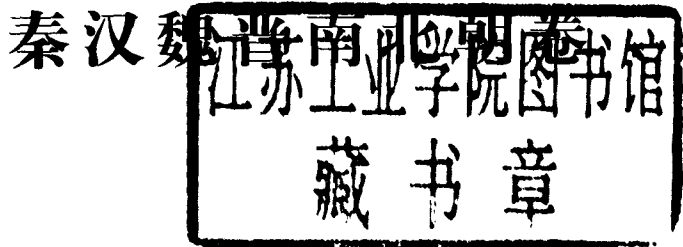 秦汉魏晋南北朝卷
江苏工业学院图书馆
藏书章